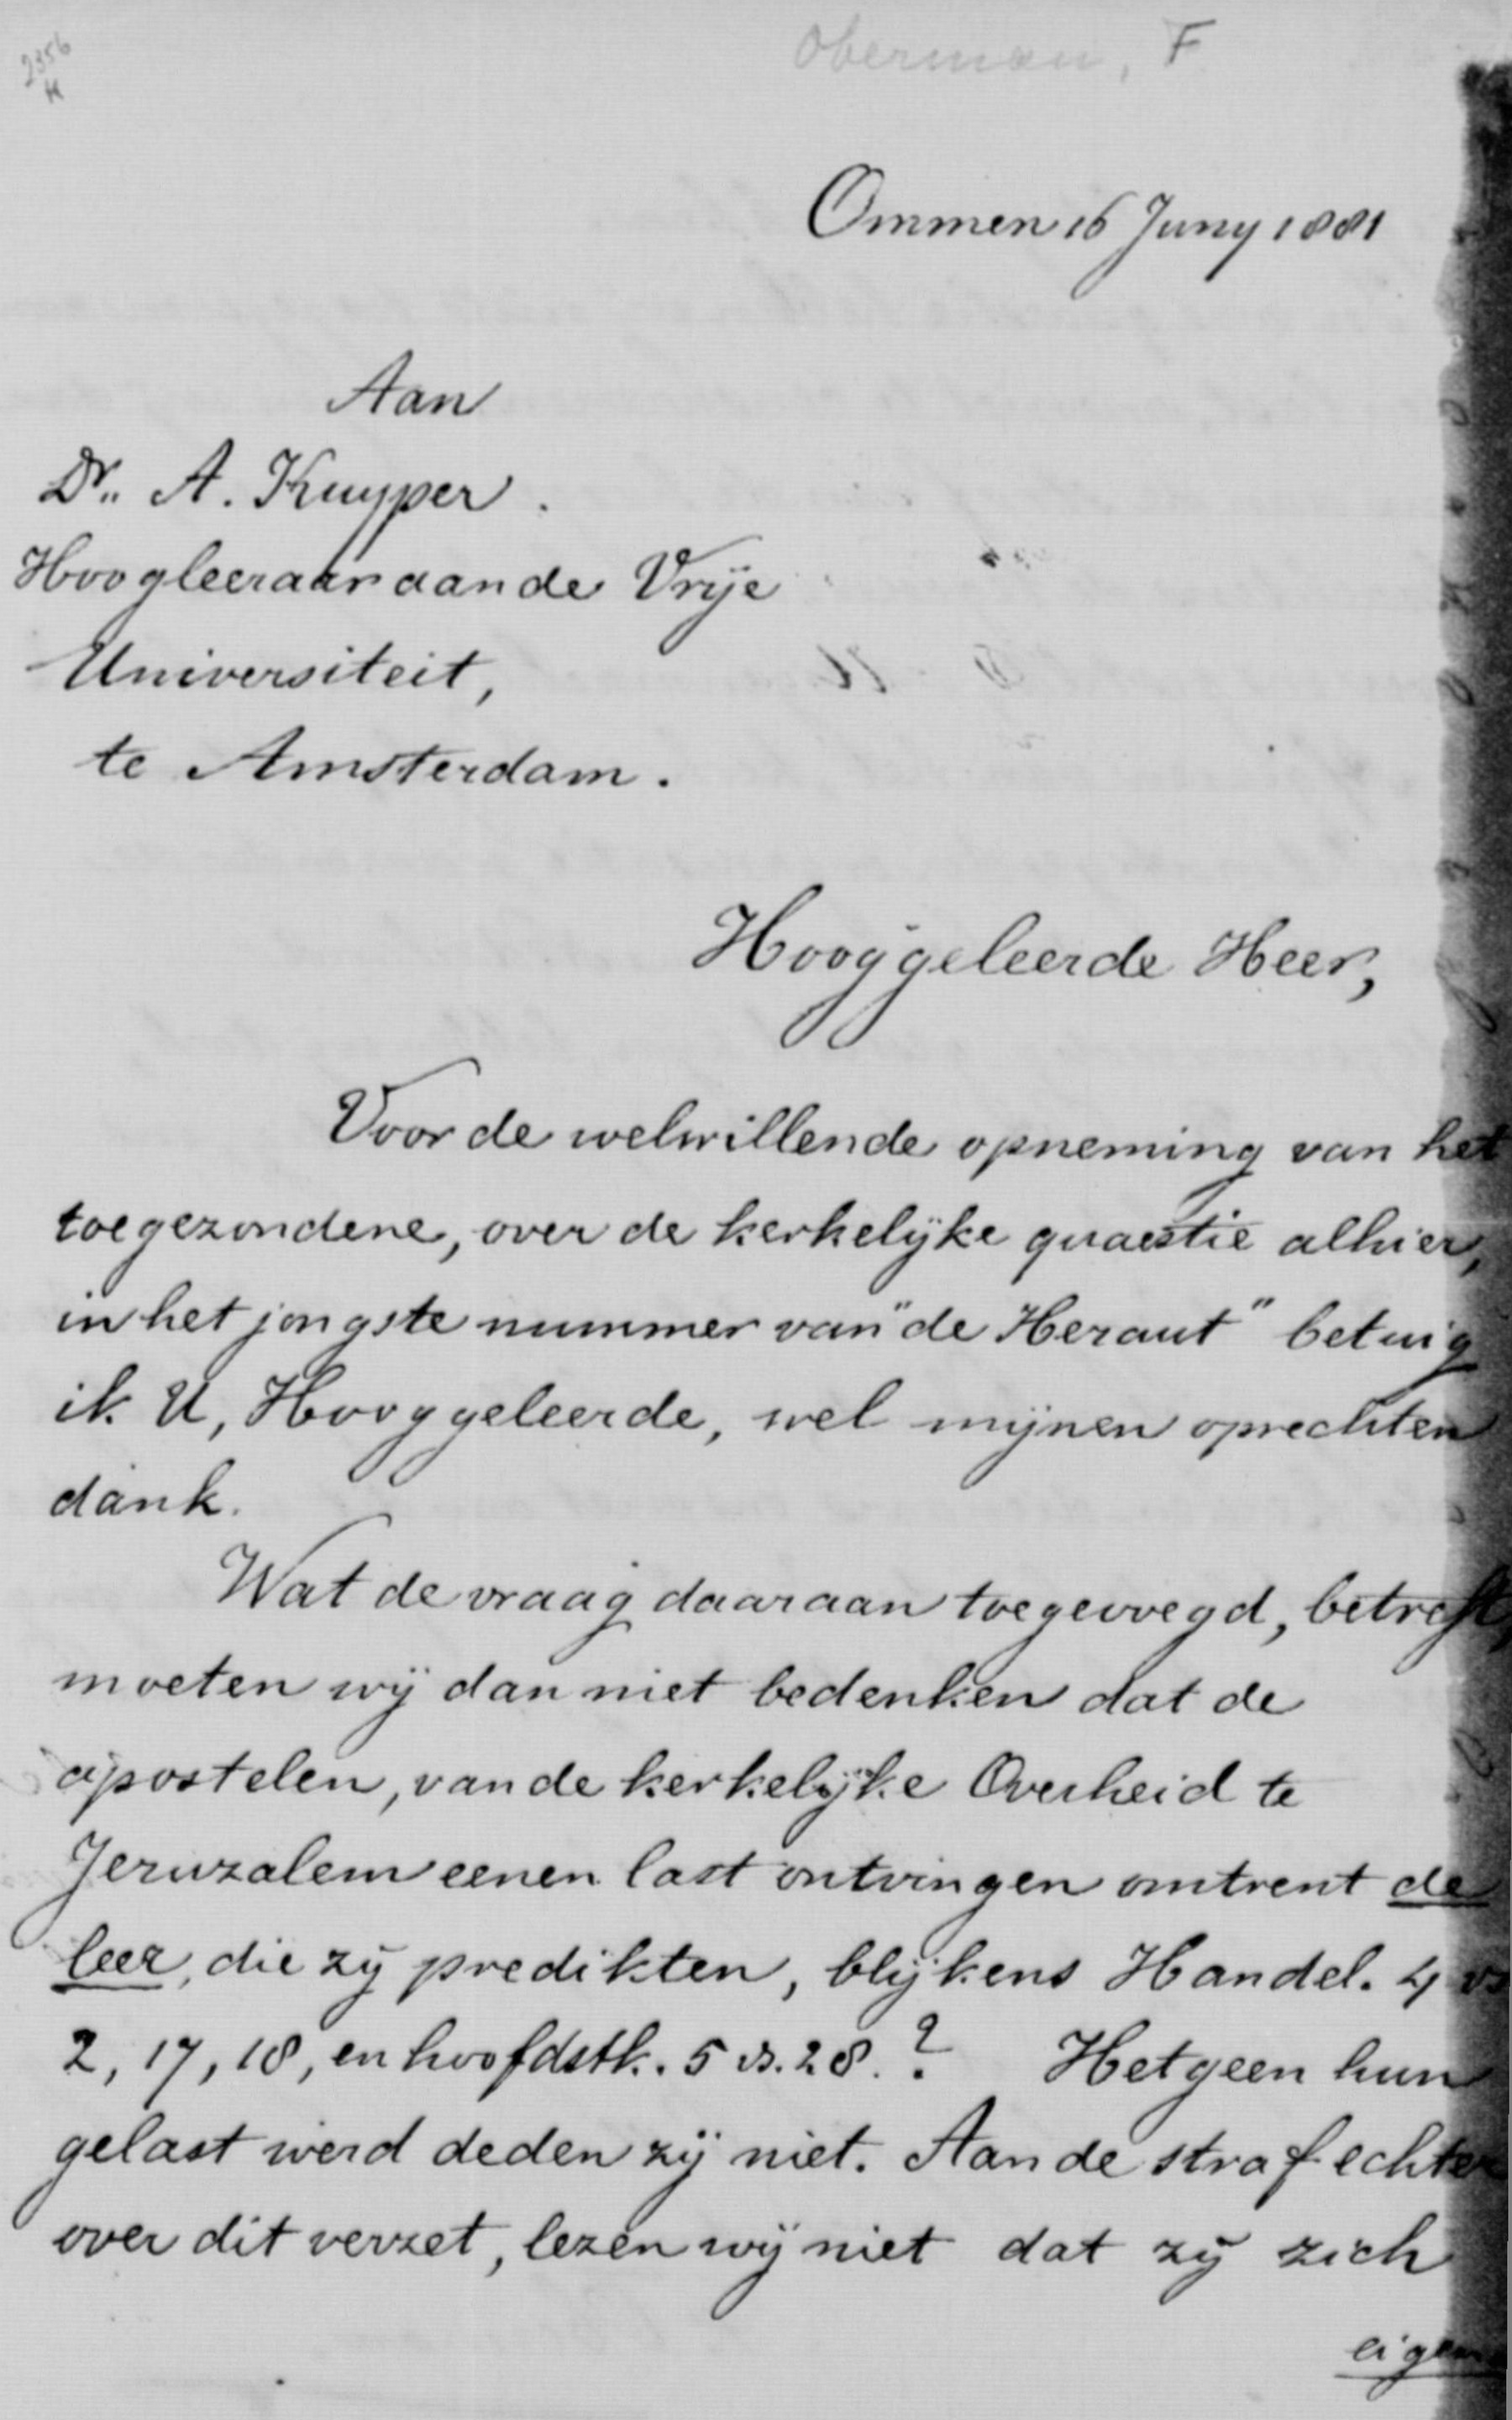 2356
Oberman, F
Ommen 16 Juny 1881
Aan
Dr. A. Kuyper.
Hoogleeraar aan de Vrije
Universiteit,
te Amsterdam.
Hooggeleerde Heer,
Voor de welwillende opneming van het
toegezondene, over de kerkelijke quaestie alhier,
in het jongste nummer van "de Heraut" betuig
ik U, Hooggeleerde, wel mijnen oprechten
dank.
Wat de vraag daaraan toegevoegd, betreft,
moeten wij dan niet bedenken dat de
apostelen, van de kerkelijke Overheid te
Jeruzalem eenen last ontvingen omtrent de
leer, die zij predikten, blijkens Handel. 4 vs
2, 17, 18, en hoofdstk. 5 vs. 28. ? Hetgeen hun
gelast werd deden zij niet. Aan de straf echter
over dit verzet, lezen wij niet dat zij zich